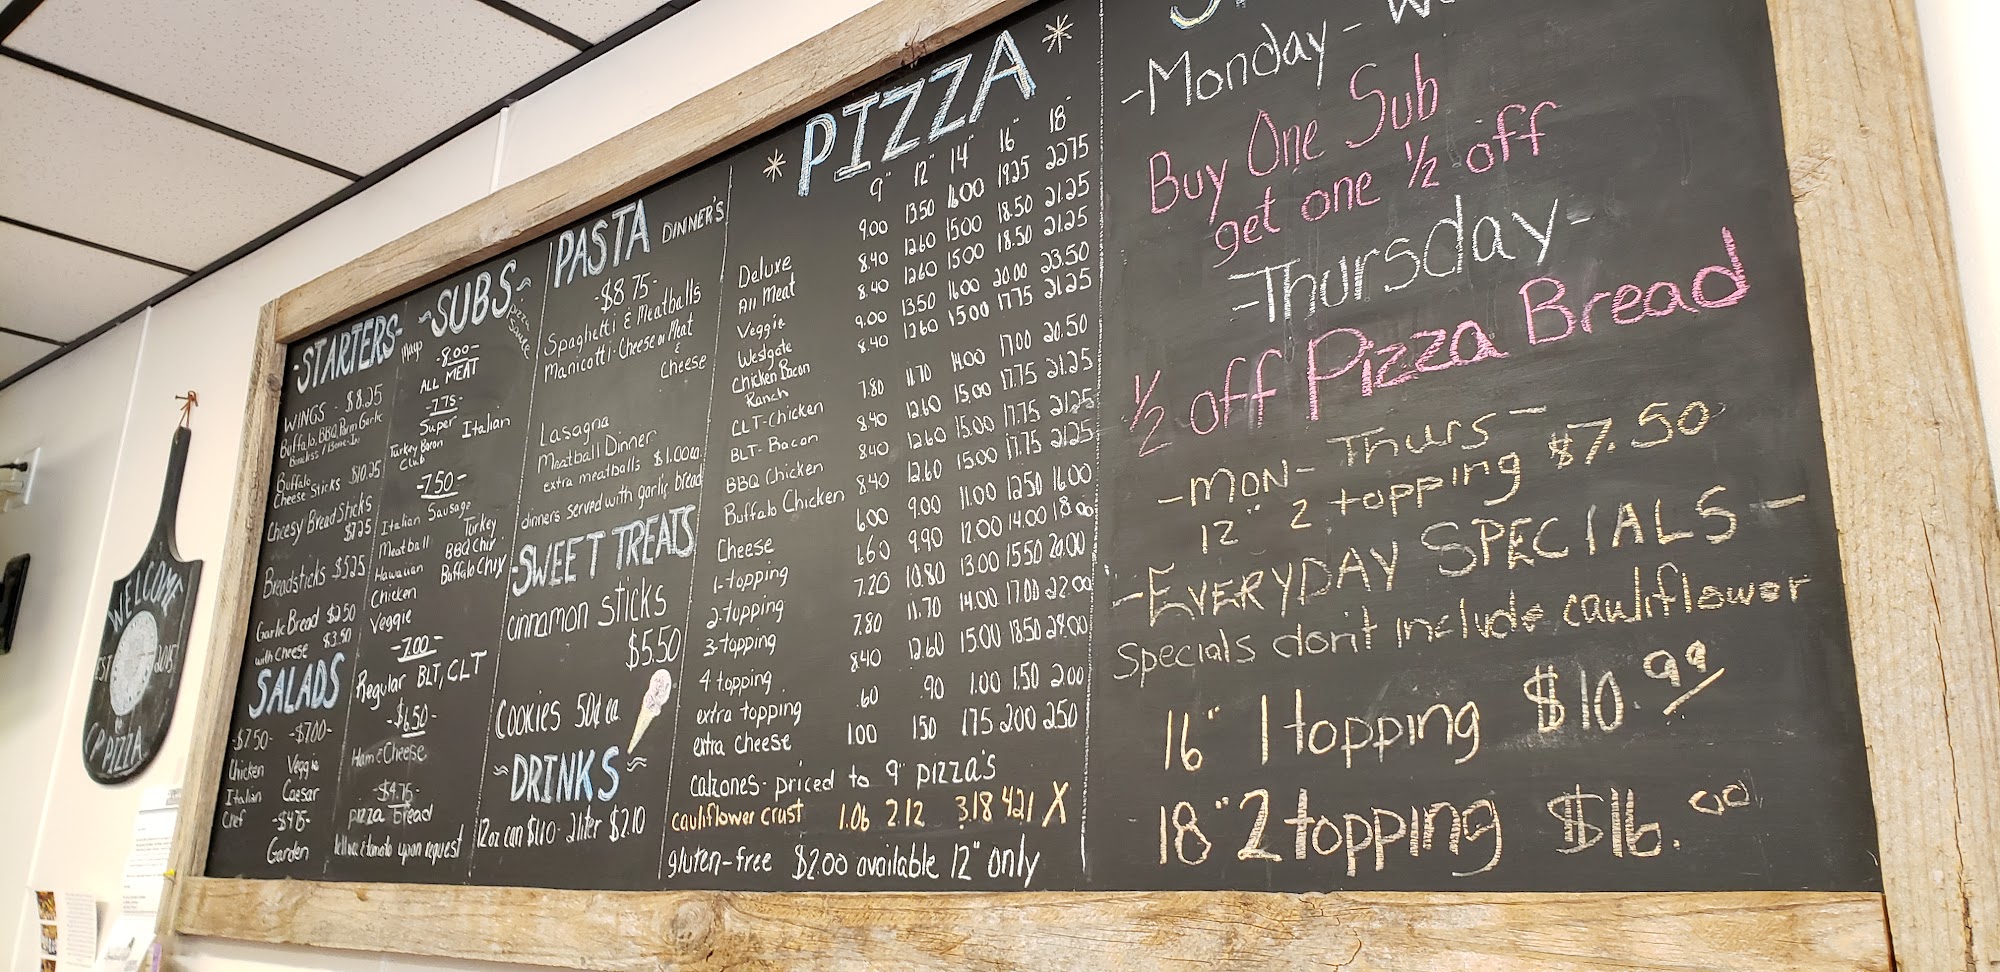 -STARTERS-
WINGS - $8.25
Buffalo, BBQ, Parm Garlic
Boneless / Bone-In
Buffalo
Cheese Sticks $10.25
Cheesy Bread Sticks
$7.25
Breadsticks $5.25
Garlic Bread $2.50
with Cheese $3.50
SALADS
-$7.50- -$7.00-
Chicken Veggie
Italian Caesar
Chef -$4.75-
Garden
~SUBS~
Mayo pizza sauce
-8.00-
ALL MEAT
-7.75-
Super Italian
Turkey Bacon
Club
-7.50-
Italian Sausage
Meatball Turkey
Hawaiian BBQ Chix
Chicken Buffalo Chix
Veggie
-7.00-
Regular BLT, CLT
-$6.50-
Ham & Cheese
-$4.75-
pizza bread
tomato upon request
PASTA DINNER'S
-$8.75-
Spaghetti & Meatballs
Manicotti - Cheese or Meat
& Cheese
Lasagna
Meatball Dinner
extra meatballs $1.00 ea.
dinners served with garlic bread
SWEET TREATS
cinnamon sticks
$5.50
Cookies 50¢ ea
~DRINKS~
12 oz can $1.10 2 liter $2.10
* PIZZA *
9" 12" 14" 16" 18"
Deluxe 9.00 13.50 16.00 19.25 22.75
All Meat 8.40 12.60 15.00 18.50 21.25
Veggie 8.40 12.60 15.00 18.50 21.25
Westgate 9.00 13.50 16.00 20.00 23.50
Chicken Bacon 8.40 12.60 15.00 17.75 21.25
Ranch
CLT-Chicken 7.80 11.70 14.00 17.00 20.50
BLT-Bacon 8.40 12.60 15.00 17.75 21.25
BBQ Chicken 8.40 12.60 15.00 17.75 21.25
Buffalo Chicken 8.40 12.60 15.00 17.75 21.25
Cheese 6.00 9.00 11.00 12.50 16.00
1-topping 6.60 9.90 12.00 14.00 18.00
2-topping 7.20 10.80 13.00 15.50 20.00
3-topping 7.80 11.70 14.00 17.00 22.00
4 topping 8.40 12.60 15.00 18.50 24.00
extra topping .60 .90 1.00 1.50 2.00
extra cheese 1.00 1.50 1.75 2.00 2.50
calzones - priced to 9" pizza's
cauliflower crust 1.06 2.12 3.18 4.21 X
gluten-free $2.00 available 12" only
-Monday -
Buy One Sub
get one 1/2 off
-Thursday-
1/2 off Pizza Bread
-MON- Thurs-
12" 2 topping $7.50
-EVERYDAY SPECIALS-
Specials don't include cauliflower
16" 1 topping $10.99
18" 2 topping $16.00
WELCOME
EST 2015
CP PIZZA